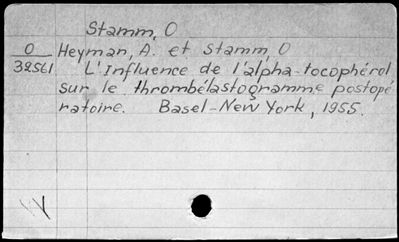 Stamm, O
O Heyman, A. et Stamm, O
32561 L'Influence de l'alpha-tocophérol
sur le thrombélastogramme postopé
ratoire. Basel-New York, 1955.